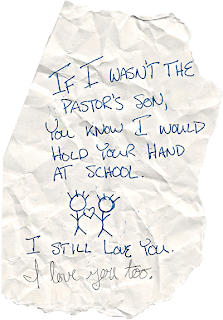 IF I WASN'T THE
PASTOR'S SON,
YOU KNOW I WOULD
HOLD YOUR HAND
AT SCHOOL.
I STILL LOVE YOU.
I love you too.